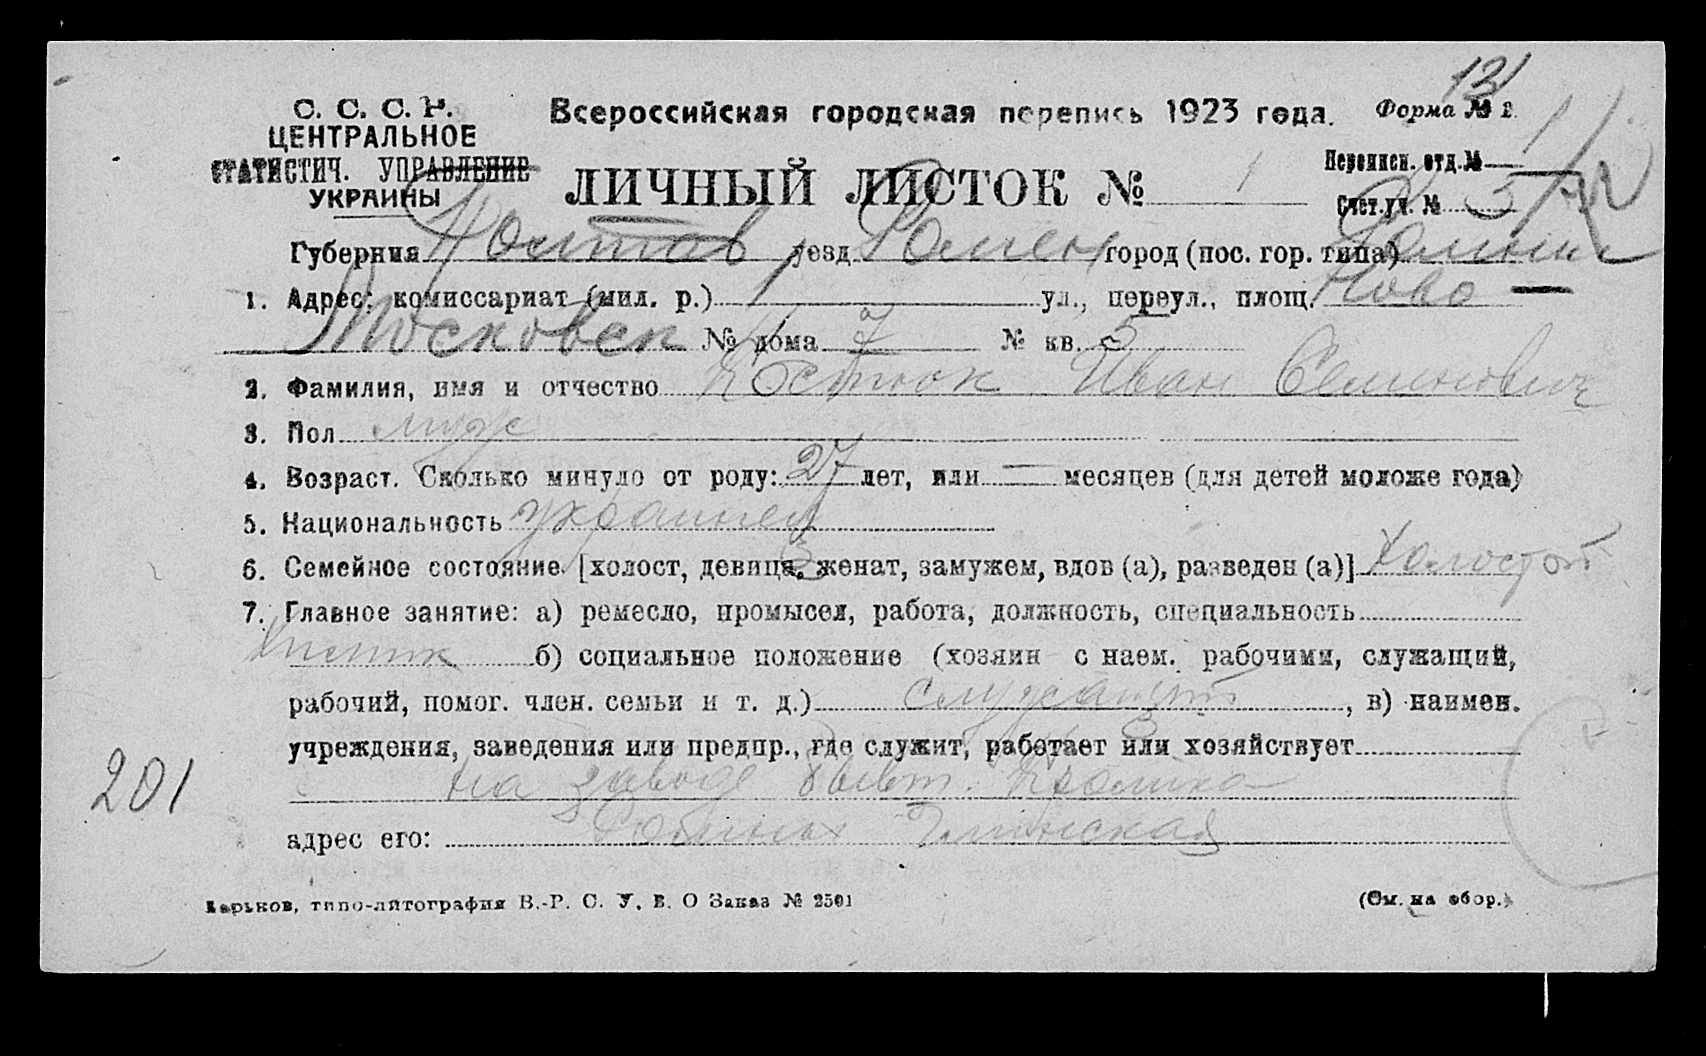 131
С. С. С. Р. Всероссийская городская перепись 1923 года. Форма № 2.
ЦЕНТРАЛЬНОЕ
СТАТИСТИЧ. УПРАВЛЕНИЕ Переписн. отд. № 1
УКРАИНЫ ЛИЧНЫЙ ЛИСТОК № 1 Счет. уч. № 3
Губерния Полтав уезд Ромен город (пос. гор. типа) Ромны
1. Адрес: комиссариат (мил. р.) 1 ул., переул., площ. Ново
Московск № дома 7 № кв. 5
2. Фамилия, имя и отчество Костюк Иван Семенович
3. Пол муж
4. Возраст. Сколько минуло от роду: 27 лет, или — месяцев (для детей моложе года)
5. Национальность украинец
6. Семейное состояние [холост, девица, женат, замужем, вдов (а), разведен (а)] Холостой
7. Главное занятие: а) ремесло, промысел, работа, должность, специальность
Химик б) социальное положение (хозяин с наем. рабочими, служащий,
рабочий, помог. член. семьи и т. д.) служащий, в) наимен.
учреждения, заведения или предпр., где служит, работает или хозяйствует
на заводе бывт.
201
адрес его:
Харьков, типо-литография В.-Р. С. У. В. О Заказ № 2501 (См. на обор.)